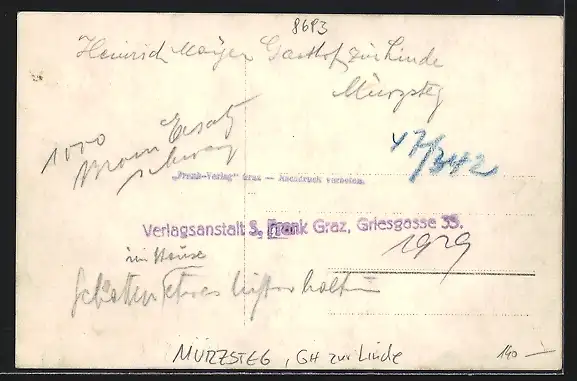 8693
Heinrich Mayer Gasthof zur Linde
Mürzsteg
1000
braun Ersatz
schwarz
47/342
„Frank-Verlag" Graz — Nachdruck verboten.
Verlagsanstalt S. Frank Graz, Griesgasse 35.
1929
im Hause
halten
MÜRZSTEG, GH zur Linde
140 —